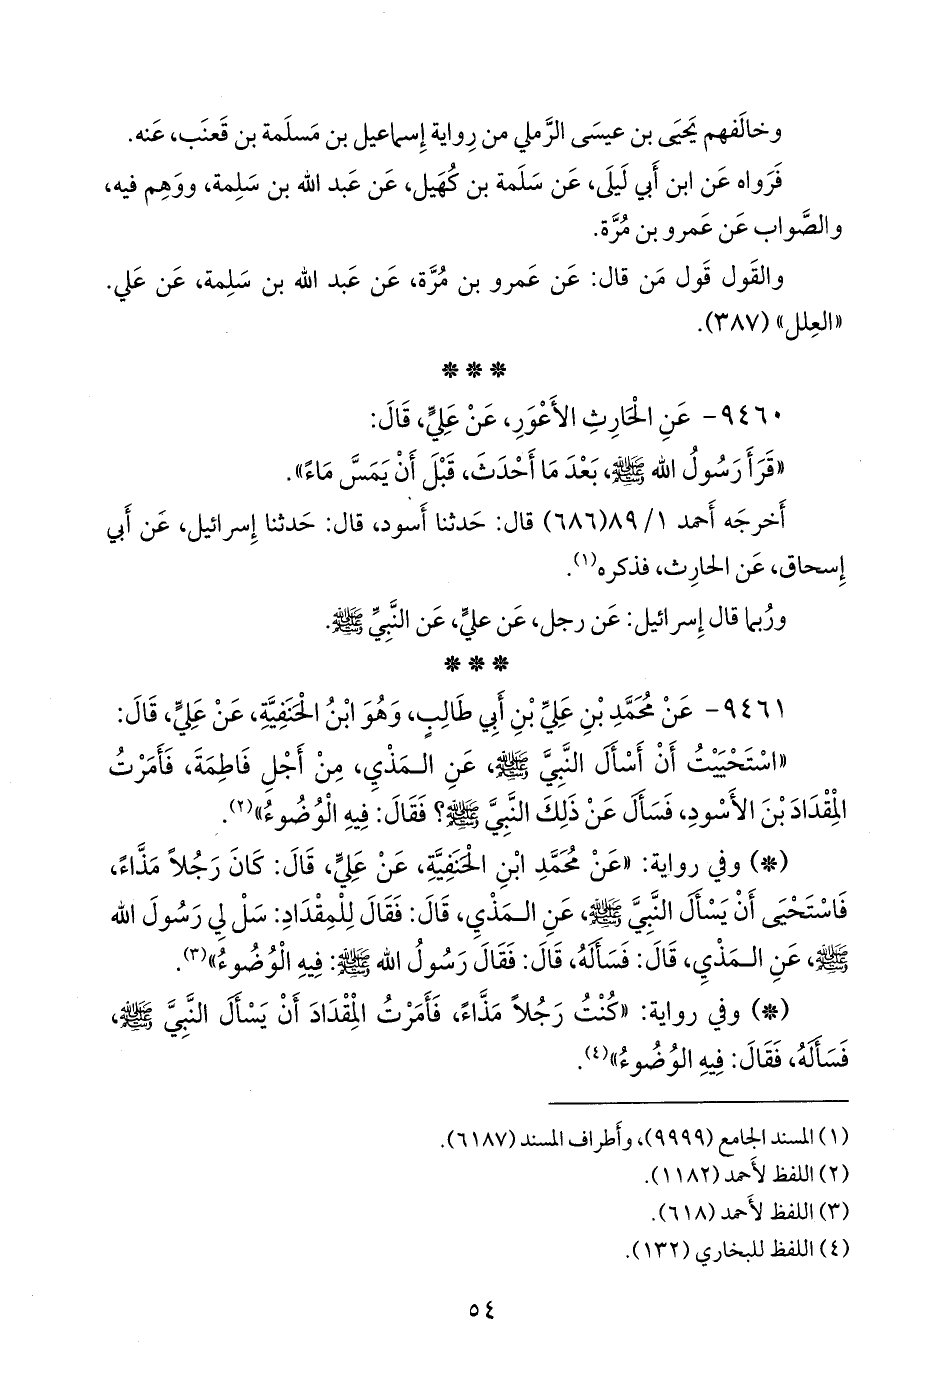 وخالَفهم يَحيَى بن عيسَى الرَّملي من رِواية إِسماعيل بن مَسلَمة بن قَعنَب، عَنه.
فَرَواه عَن ابن أَبي لَيلَى، عَن سَلَمة بن كُهَيل، عَن عَبد الله بن سَلِمة، ووَهِم فيه،
والصَّواب عَن عَمرو بن مُرَّة.
والقَول قَول مَن قال: عَن عَمرو بن مُرَّة، عَن عَبد الله بن سَلِمة، عَن عَلي.
«العِلل» (٣٨٧).
* * *
٩٤٦٠- عَنِ الْحَارِثِ الأَعْوَرِ، عَنْ عَلِيٍّ، قَالَ:
«قَرَأَ رَسُولُ الله ﷺ، بَعْدَ مَا أَحْدَثَ، قَبْلَ أَنْ يَمَسَّ مَاءً».
أَخرجَه أَحمد ١/ ٨٩(٦٨٦) قال: حَدثنا أَسود، قال: حَدثنا إِسرائيل، عَن أَبي
إِسحاق، عَن الحارِث، فذكره(١).
ورُبما قال إِسرائيل: عَن رجل، عَن عليٍّ، عَن النَّبيِّ ﷺ.
* * *
٩٤٦١- عَنْ مُحَمَّدِ بْنِ عَلِيِّ بْنِ أَبِي طَالِبٍ، وَهُوَ ابْنُ الْحَنَفِيَّةِ، عَنْ عَلِيٍّ، قَالَ:
«اسْتَحْيَيْتُ أَنْ أَسْأَلَ النَّبِيَّ ﷺ، عَنِ الـمَذْيِ، مِنْ أَجْلِ فَاطِمَةَ، فَأَمَرْتُ
الْمِقْدَادَ بْنَ الأَسْوَدِ، فَسَأَلَ عَنْ ذَلِكَ النَّبِيَّ ﷺ؟ فَقَالَ: فِيهِ الْوُضُوءُ»(٢).
(*) وفي رواية: «عَنْ مُحَمَّدِ ابْنِ الْحَنَفِيَّةِ، عَنْ عَلِيٍّ، قَالَ: كَانَ رَجُلاً مَذَّاءً،
فَاسْتَحْيَى أَنْ يَسْأَلَ النَّبِيَّ ﷺ، عَنِ الـمَذْيِ، قَالَ: فَقَالَ لِلْمِقْدَادِ: سَلْ لِي رَسُولَ الله
ﷺ، عَنِ الـمَذْيِ، قَالَ: فَسَأَلَهُ، قَالَ: فَقَالَ رَسُولُ الله ﷺ: فِيهِ الْوُضُوءُ»(٣).
(*) وفي رواية: «كُنْتُ رَجُلاً مَذَّاءً، فَأَمَرْتُ الْمِقْدَادَ أَنْ يَسْأَلَ النَّبِيَّ ﷺ،
فَسَأَلَهُ، فَقَالَ: فِيهِ الوُضُوءُ»(٤).
(١) المسند الجامع (٩٩٩٩)، وأَطراف المسند (٦١٨٧).
(٢) اللفظ لأَحمد (١١٨٢).
(٣) اللفظ لأَحمد (٦١٨).
(٤) اللفظ للبخاري (١٣٢).
٥٤